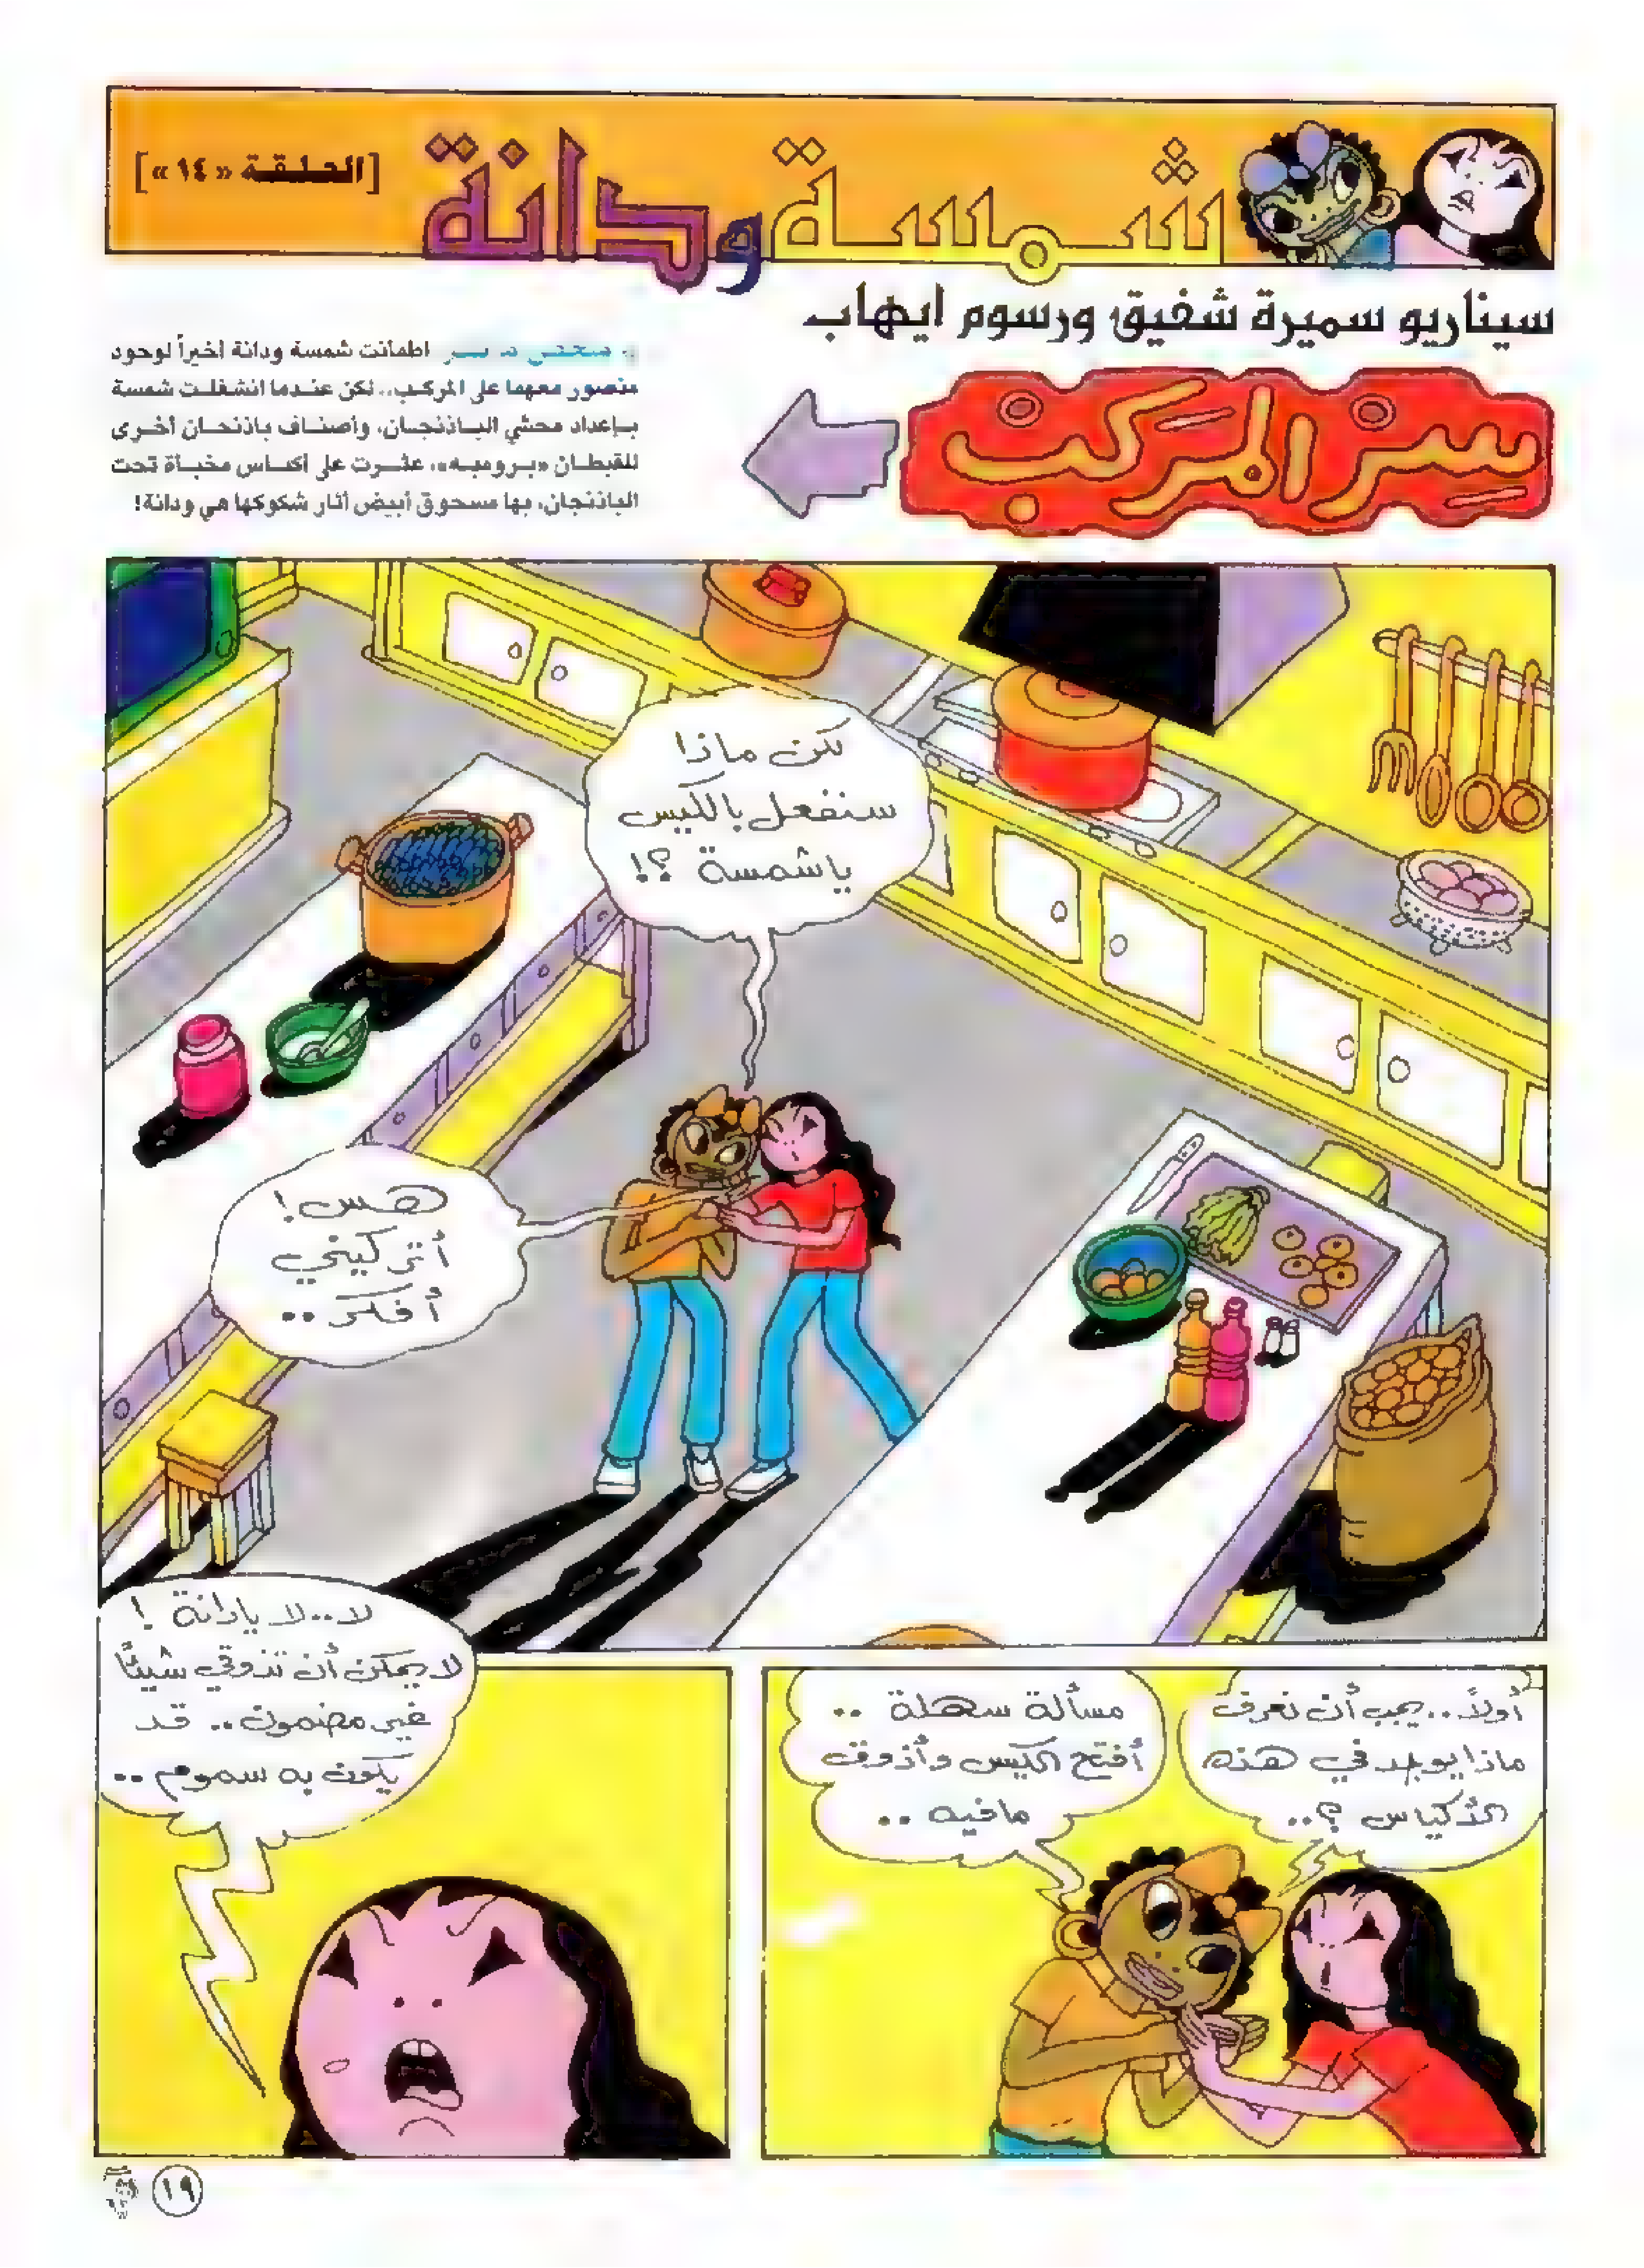 شمسة ودانة
[الحلقة «١٤»]
سيناريو سميرة شفيق ورسوم ايهاب
سر المركب
اطمأنت شمسة ودانة أخيراً لوجود
منصور معهما على المركب.. لكن عندما انشغلت شمسة
بإعداد محشي الباذنجان، وأصناف باذنجان أخرى
للقبطان «برومبه»، عثرت على أكياس مخبأة تحت
الباذنجان، بها مسحوق أبيض أثار شكوكها هي ودانة!
لكن ماذا
سنفعل بالكيس
ياشمسة ؟!
هس!
أتركيني
أفكر ..
أولاً.. يجب أن نعرف
ماذا يوجد في هذه
الأكياس ؟..
مسألة سهلة ..
أفتح الكيس وأذوق
مافيه ..
لا.. لا يادانة !
لا يمكن أن تذوقي شيئاً
غير مضمون.. قد
يكون به سموم ..
١٩